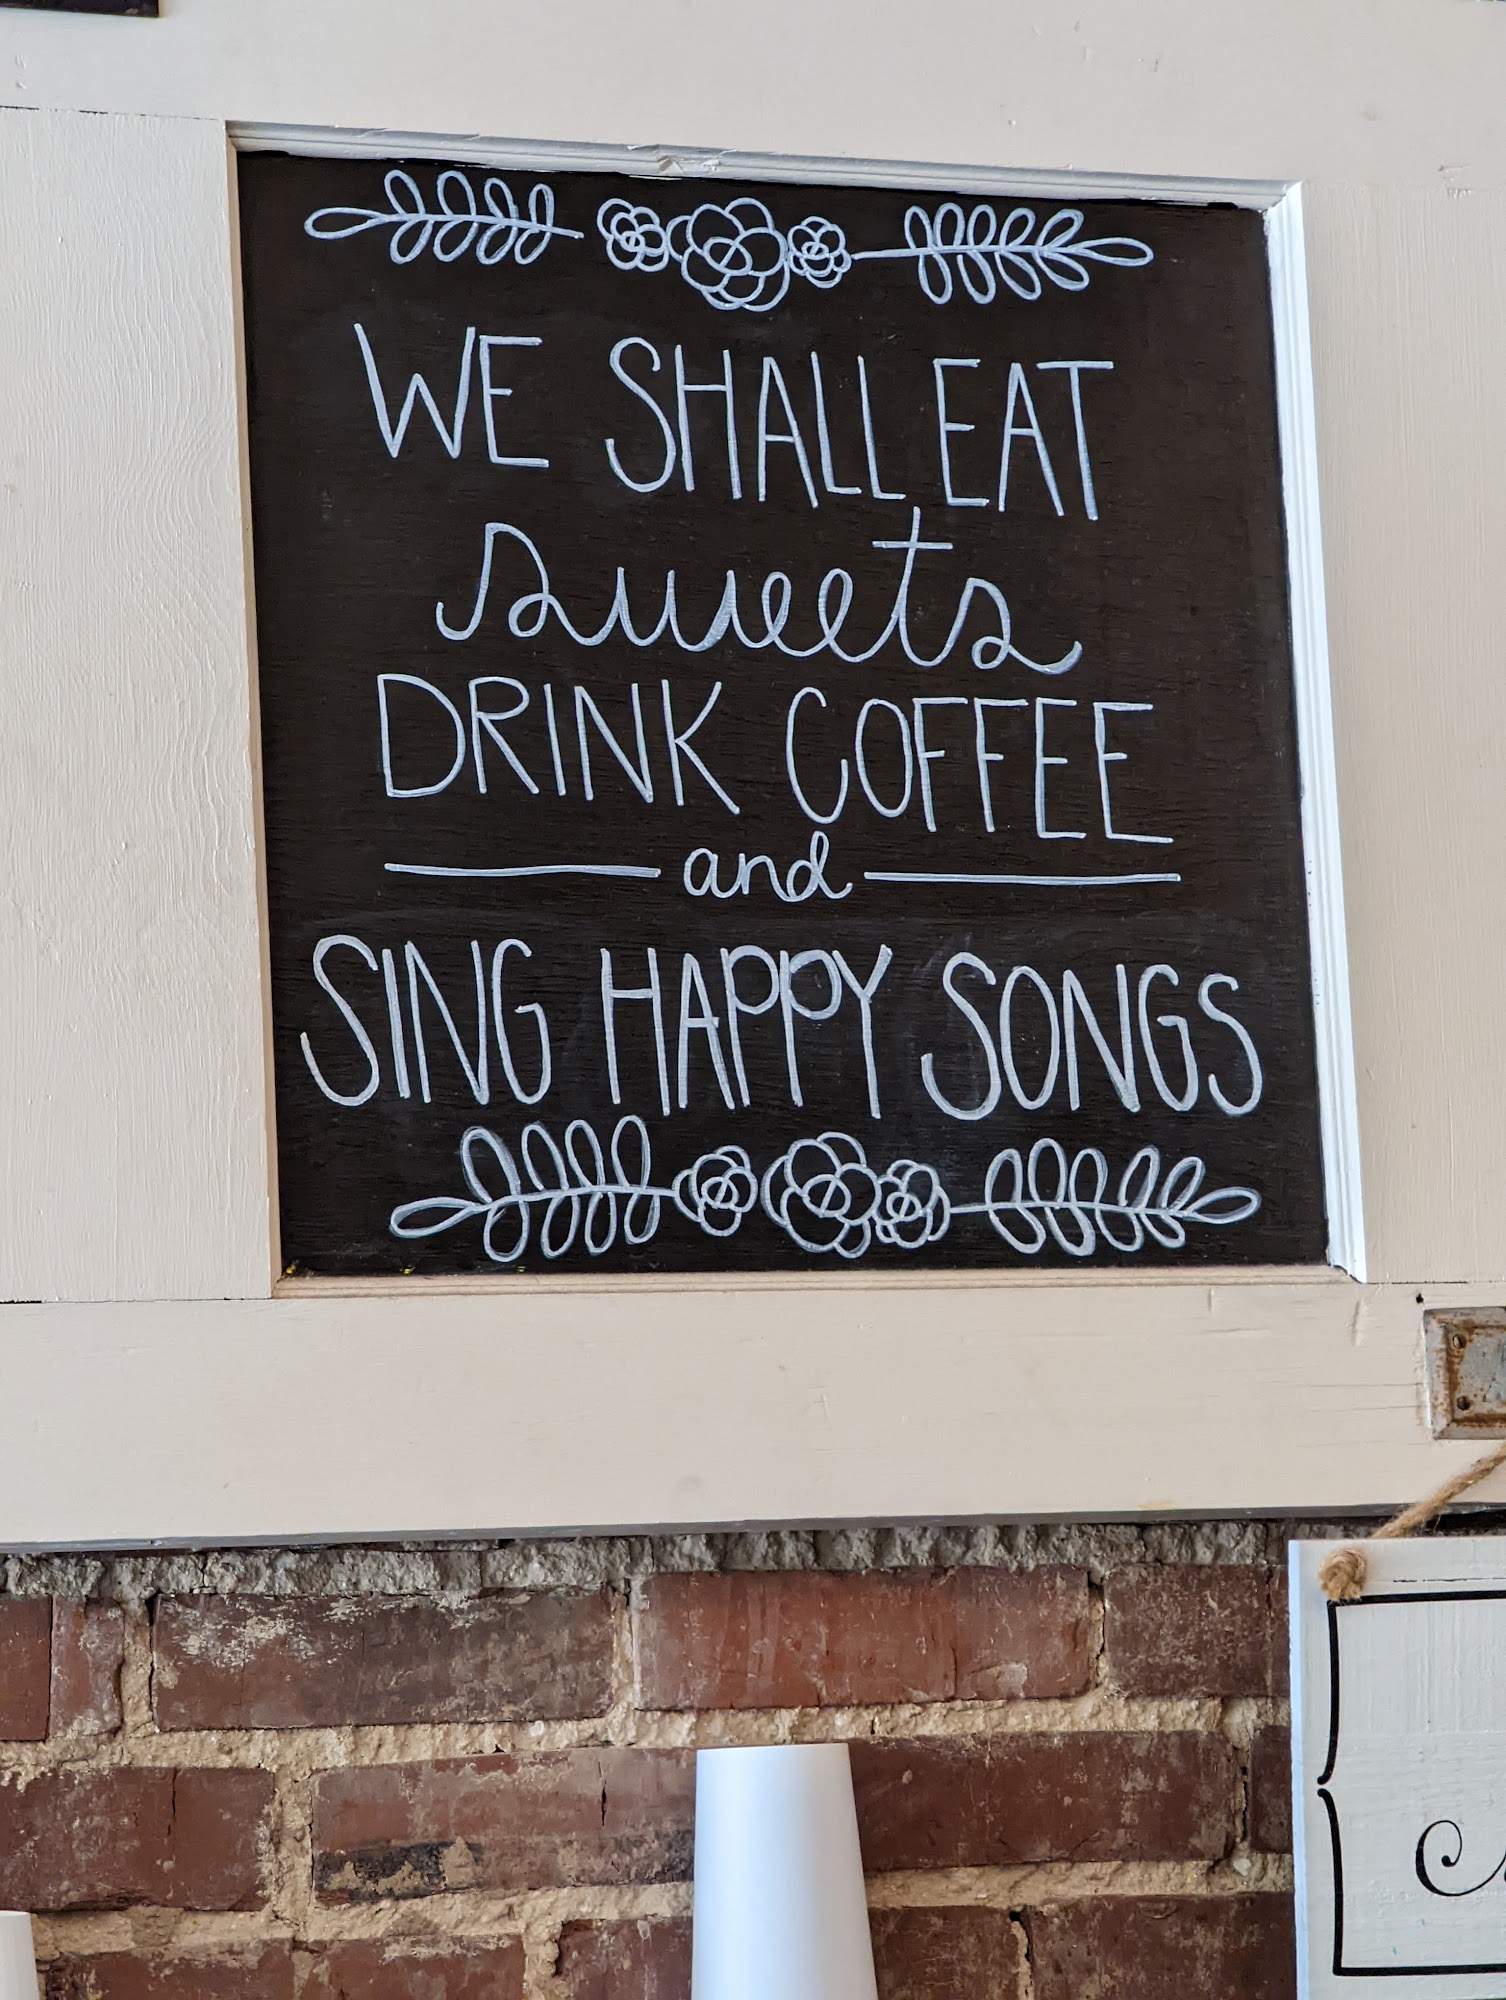 WE SHALL EAT
sweets
DRINK COFFEE
and
SING HAPPY SONGS